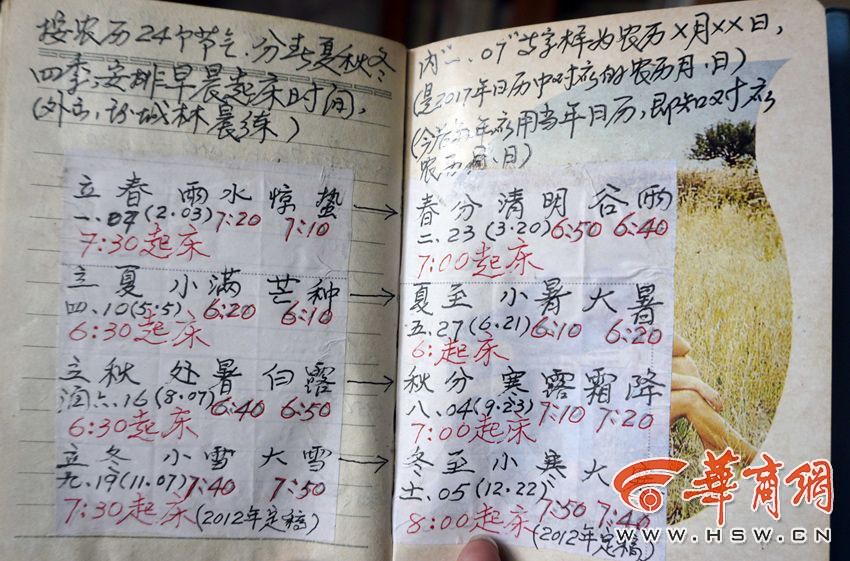 按农历24个节气.分春夏秋冬
四季,安排早晨起床时间,
(外出,环城林晨练)
立春 雨水 惊蛰
一.07(2.03) 7:20 7:10
7:30起床
立夏 小满 芒种
四.10(5.5) 6:20 6:10
6:30起床
立秋 处暑 白露
闰六.16(8.07) 6:40 6:50
6:30起床
立冬 小雪 大雪
九.19(11.07) 7:40 7:50
7:30起床(2012年定稿)
内"一.07"等字样为农历X月XX日,
(是2017年日历中对应的农历月.日)
(今后每年应用当年日历,即知对应
农历月.日)
春分 清明 谷雨
二.23(3.20) 6:50 6:40
7:00起床
夏至 小暑 大暑
五.27(6.21) 6:10 6:20
6:起床
秋分 寒露 霜降
八.04(9.23) 7:10 7:20
7:00起床
冬至 小寒 大
十一.05(12.22) 7:50 7:40
8:00起床(2012年定稿)
华商网
WWW.HSW.CN